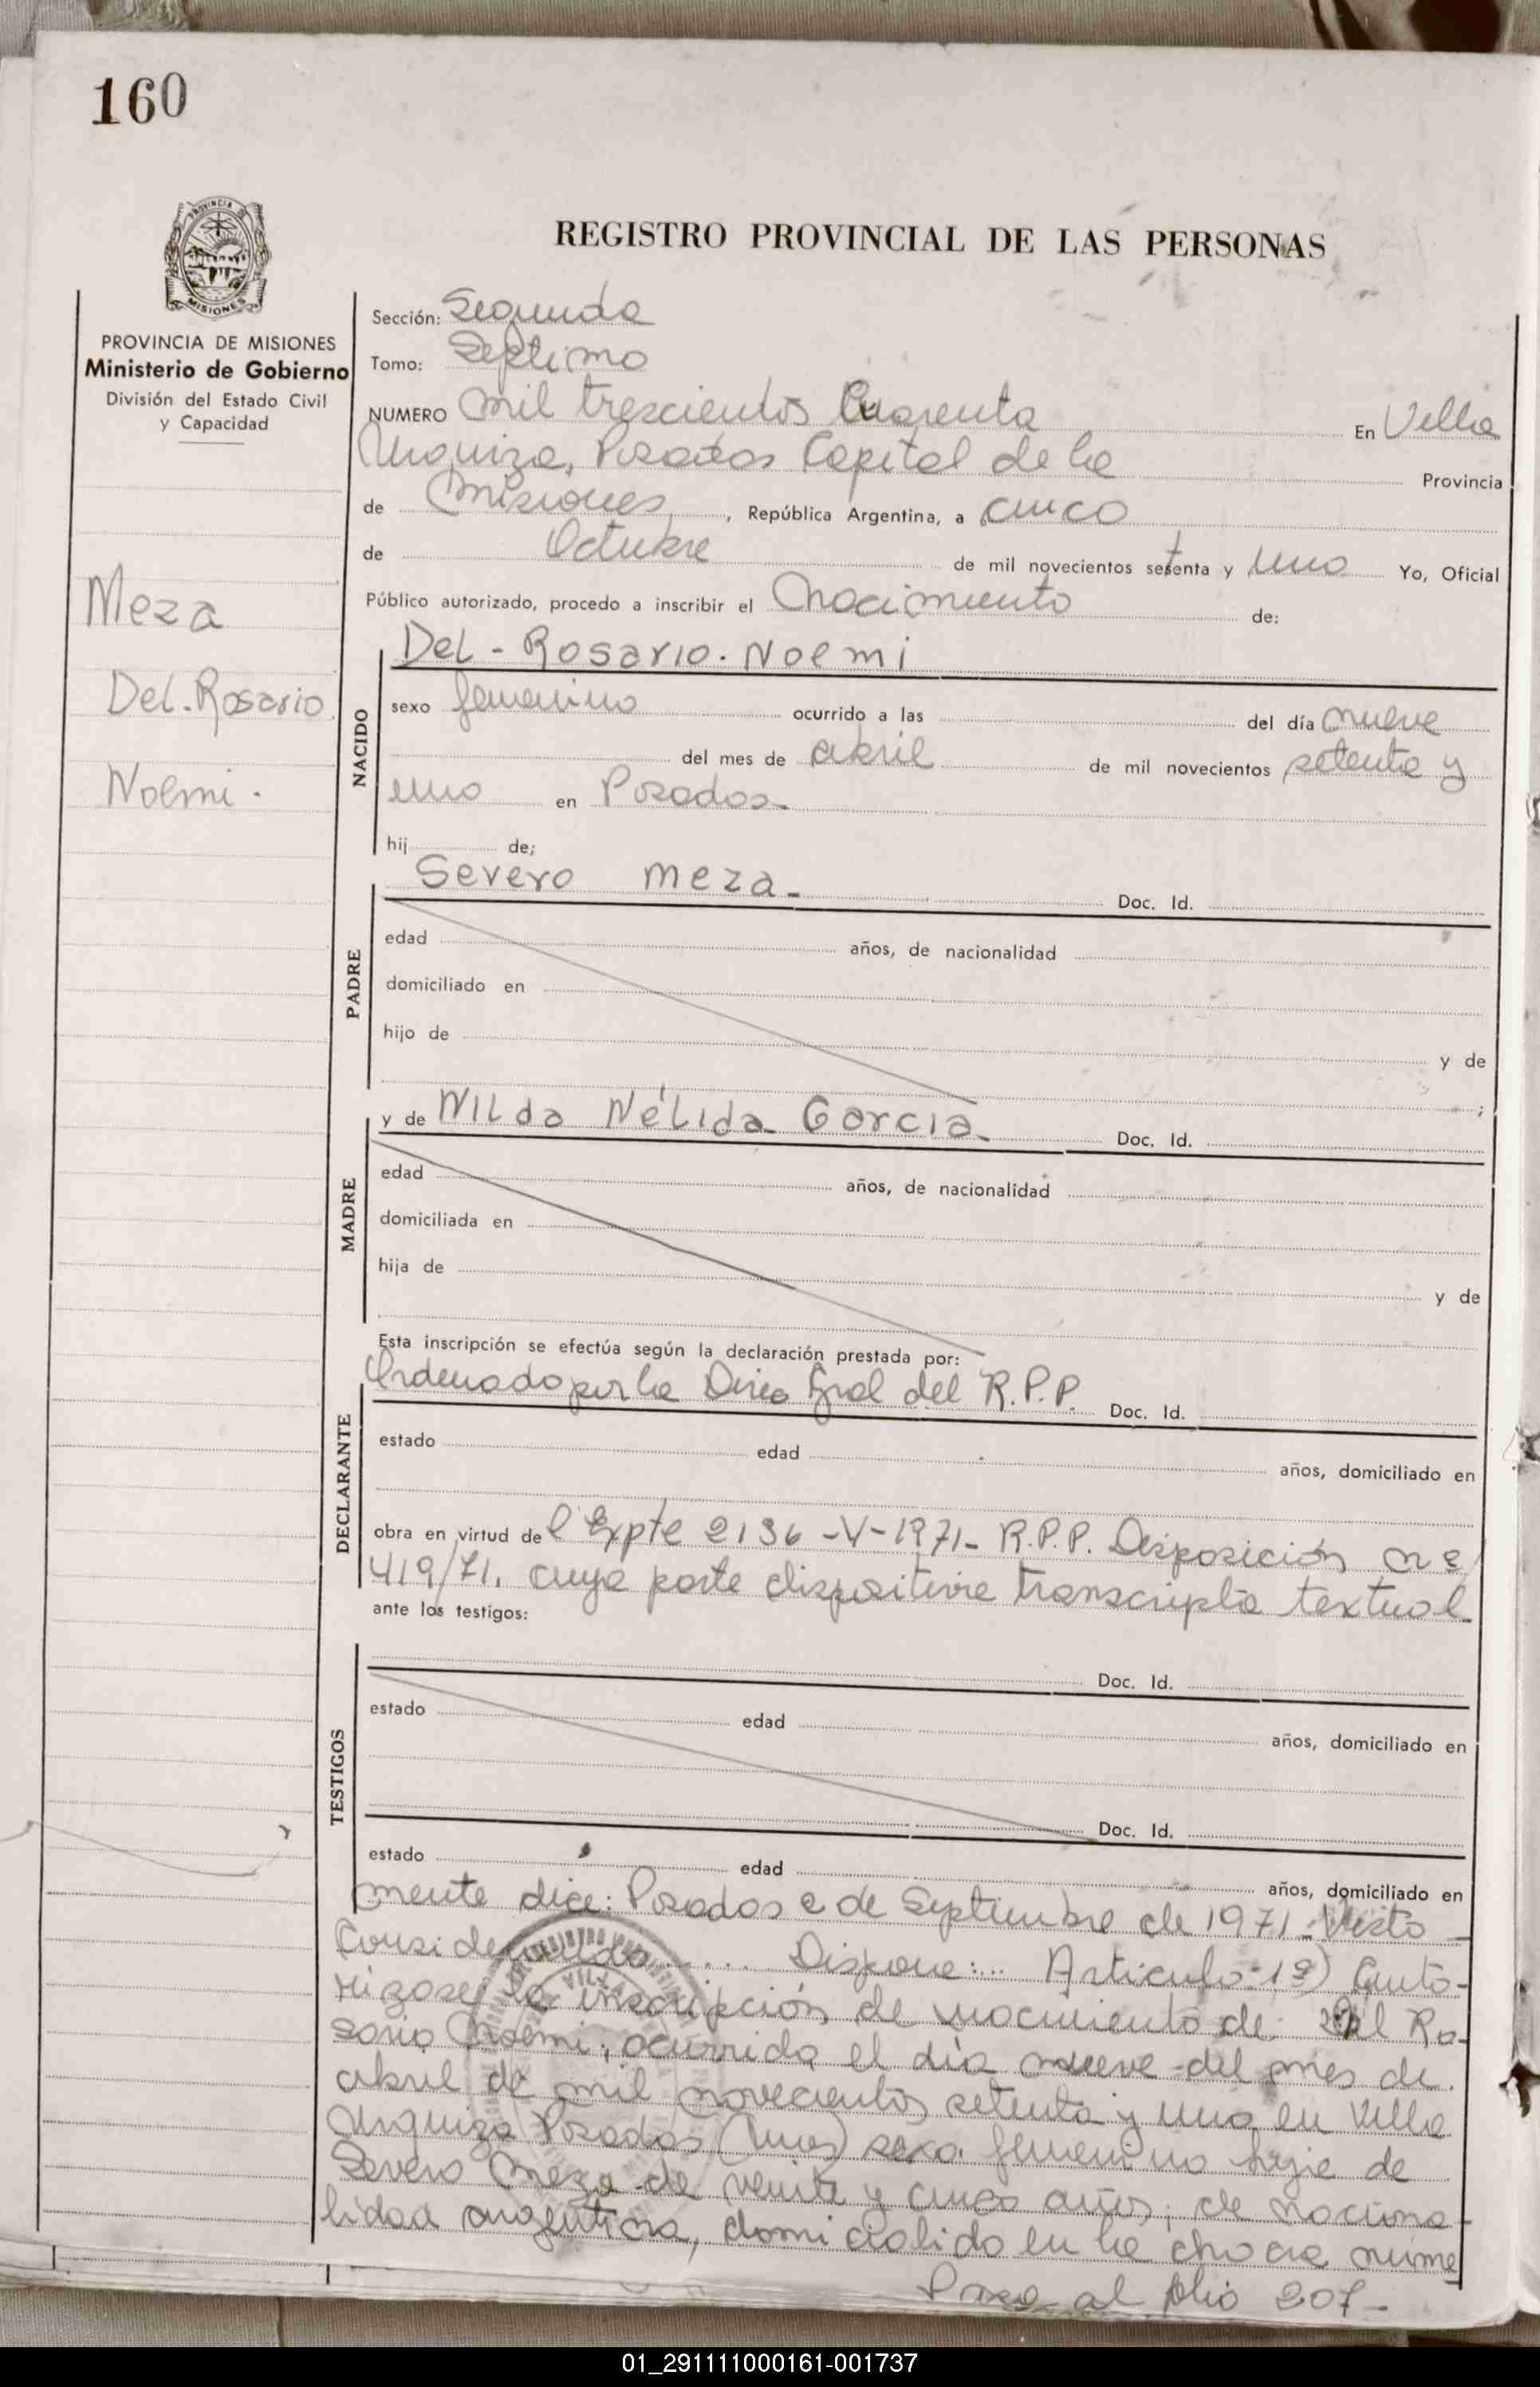 160
PROVINCIA DE
MISIONES
REGISTRO PROVINCIAL DE LAS PERSONAS
PROVINCIA DE MISIONES
Ministerio de Gobierno
División del Estado Civil
y Capacidad
Meza
Del. Rosario
Noemi.
Sección: Segunda
Tomo: Septimo
NUMERO Mil trescientos Cuarenta En Villa
Urquiza, Posadas Capital de la Provincia
de Misiones, República Argentina, a cinco
de Octubre de mil novecientos setenta y uno Yo, Oficial
Público autorizado, procedo a inscribir el Nacimiento de:
NACIDO
Del - Rosario. Noemi
sexo femenino ocurrido a las del día nueve
del mes de abril de mil novecientos setenta y
uno en Posadas.
hij de;
PADRE
Severo Meza - Doc. Id.
edad años, de nacionalidad
domiciliado en
hijo de y de
;
MADRE
y de Nilda Nélida García - Doc. Id.
edad años, de nacionalidad
domiciliada en
hija de y de
Esta inscripción se efectúa según la declaración prestada por:
DECLARANTE
Ordenado por la Direc Gral del R.P.P. Doc. Id.
estado edad años, domiciliado en
obra en virtud de l Expte 2136 -V-1971- R.P.P. Disposición nº
419/71. cuya parte dispositiva transcripta textual
ante los testigos:
TESTIGOS
Doc. Id.
estado edad años, domiciliado en
Doc. Id.
estado edad años, domiciliado en
mente dice: Posadas 2 de Septiembre de 1971 - Visto -
Considerando...... Dispone:... Articulo 1º) Auto-
rizase la inscripción de nacimiento de: Del Ro-
sario Noemi, ocurrido el día nueve del mes de
abril de mil novecientos setenta y uno en Villa
Urquiza Posadas (Mnes) sexo femenino hija de
Severo Meza de veinte y cinco años, de naciona-
lidad argentina, domicialido en la chacra nume
Pasa al folio 207 -
01_291111000161-001737